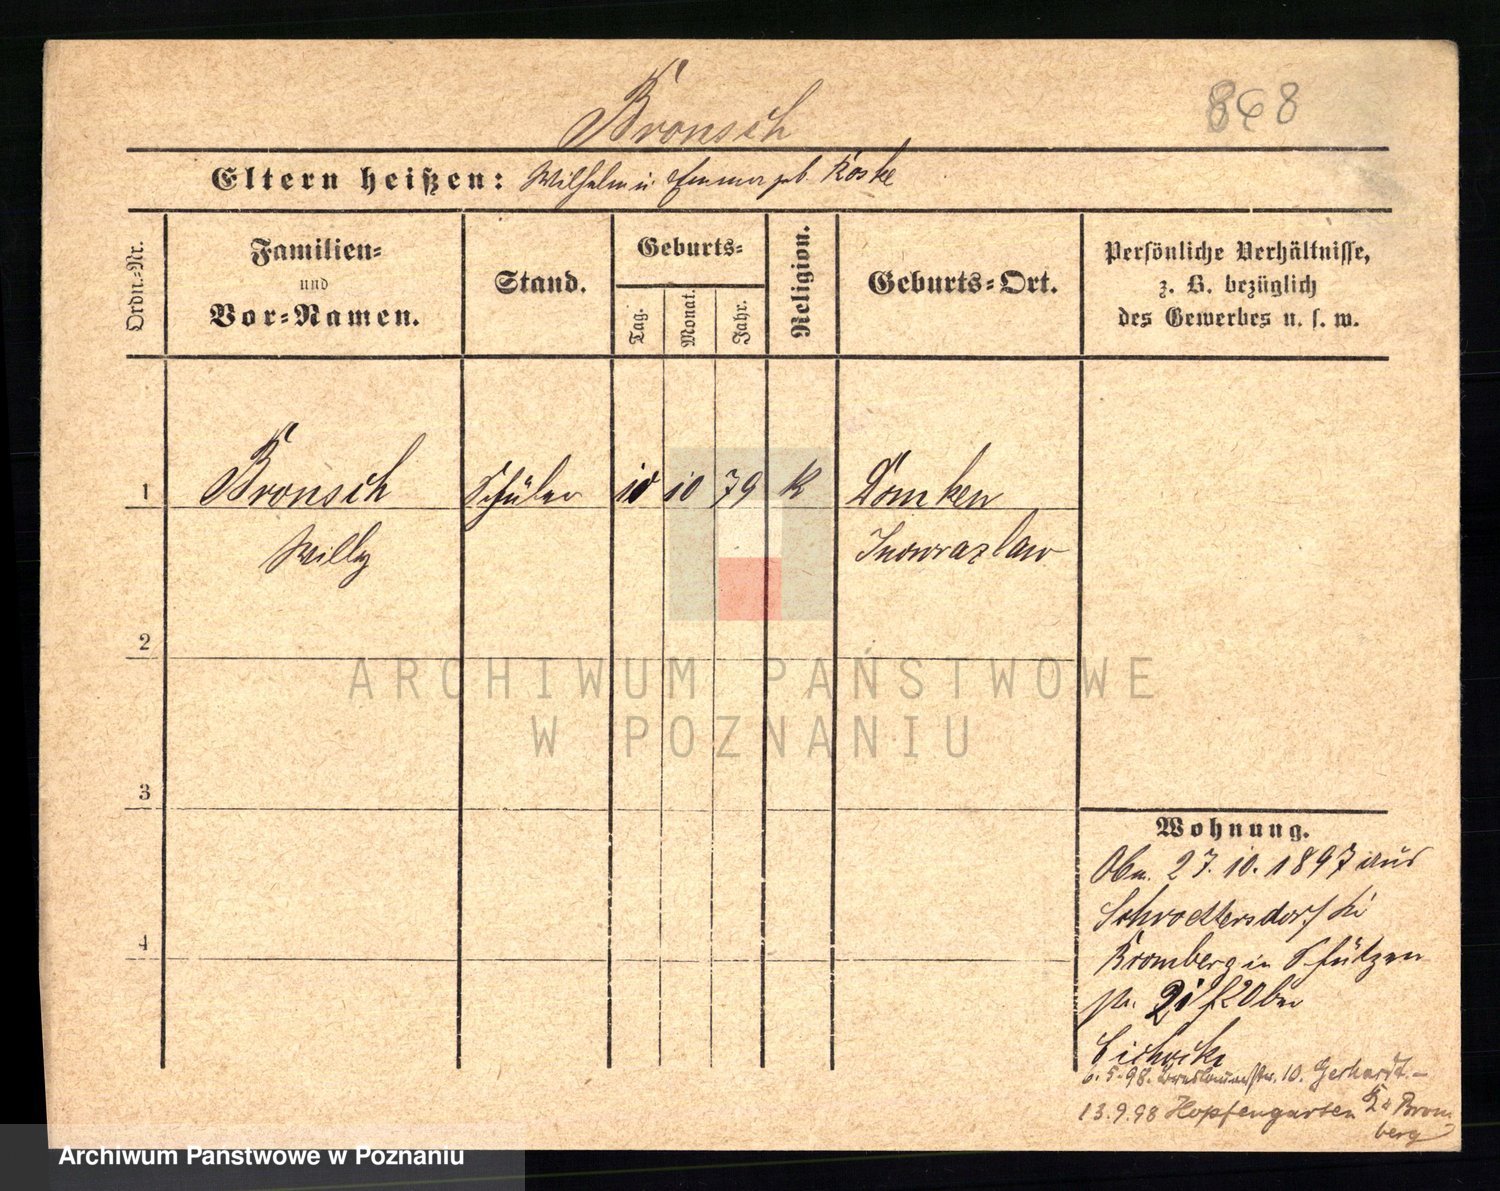 Bronsch
868
Eltern heißen: Wilhelm u. Emma geb. Koske
Ordn.=Nr.
Familien=
und
Vor=Namen.
Stand.
Geburts=
Tag.
Monat.
Jahr.
Religion.
Geburts=Ort.
Persönliche Verhältnisse,
z. B. bezüglich
des Gewerbes u. s. w.
1 Bronsch Schüler 10 79 K Domken
Willy Inowrazlaw
2
ARCHIWUM PAŃSTWOWE
W POZNANIU
3
Wohnung.
27.10.1897 aus
Schroettersdorf Kr
4
Bromberg in Schützen
str.
6.5.98. 10. Gerhardt.–
13.9.98 Hopfengarten Kr Brom
berg
Archiwum Panstwowe w Poznaniu